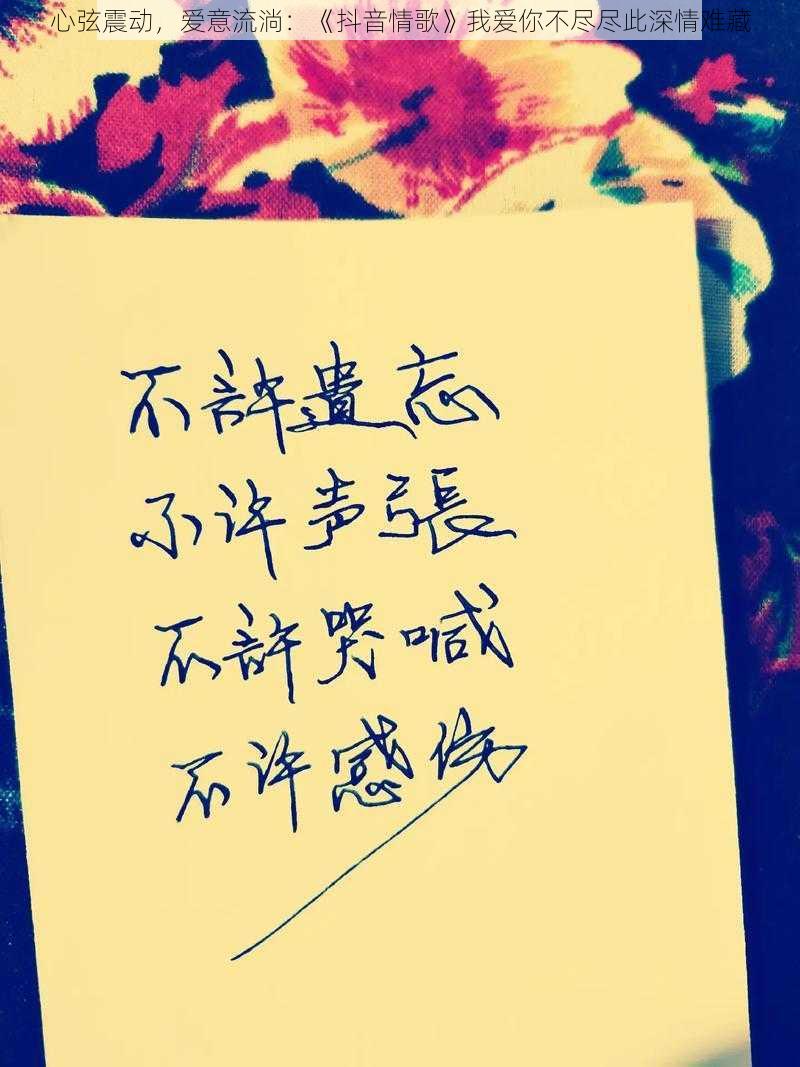 心弦震动，爱意流淌：《抖音情歌》我爱你不尽尽此深情难藏
不許遺忘
不许声張
不許哭喊
不许感伤